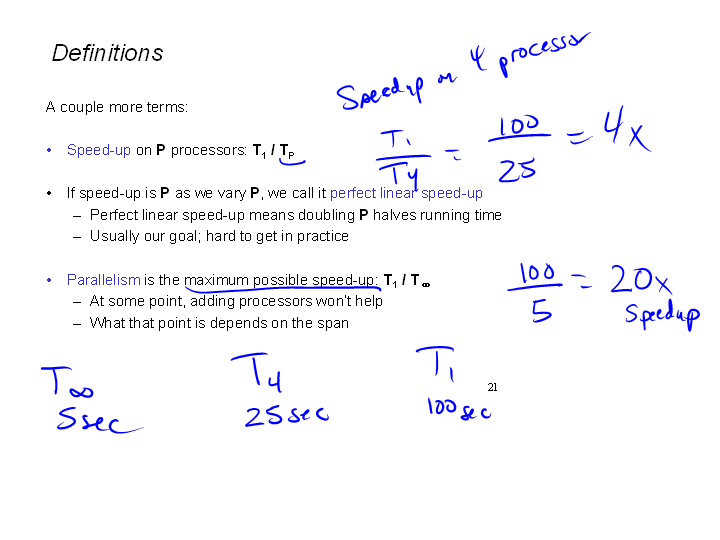 Definitions
Speedup on 4 processor
A couple more terms:
• Speed-up on P processors: T1 / TP
T1 / T4 = 100 / 25 = 4x
• If speed-up is P as we vary P, we call it perfect linear speed-up
– Perfect linear speed-up means doubling P halves running time
– Usually our goal; hard to get in practice
• Parallelism is the maximum possible speed-up: T1 / T∞
100 / 5 = 20x
speedup
– At some point, adding processors won't help
– What that point is depends on the span
T∞ T4 T1
5sec 25sec 100sec
21